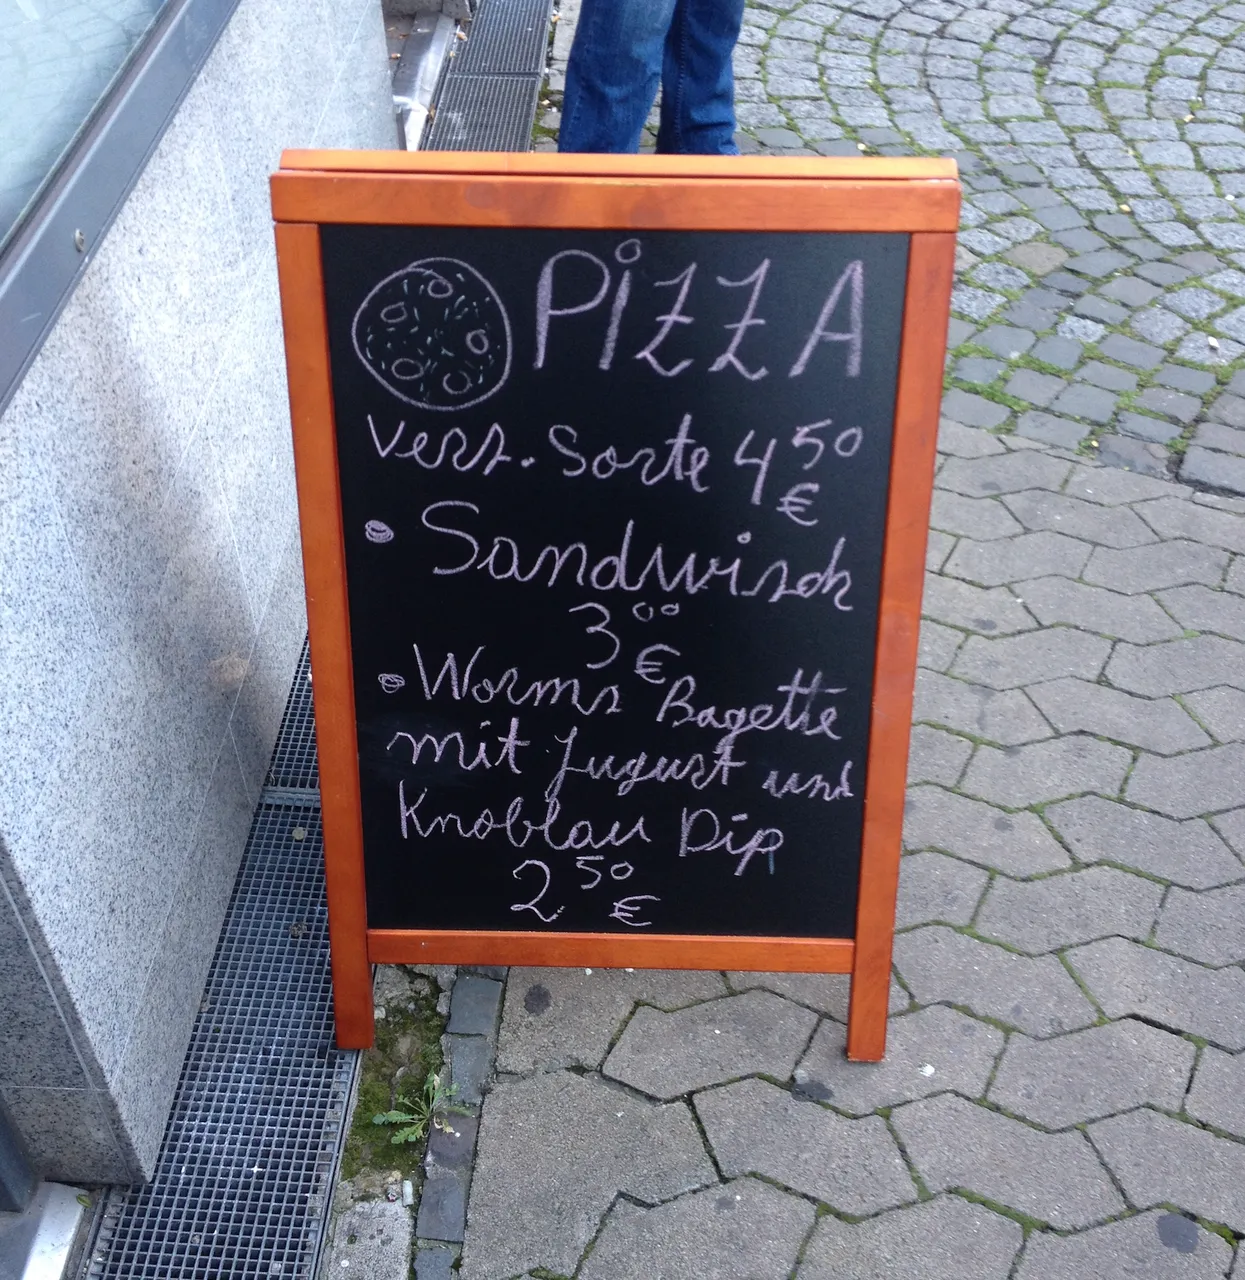 PiZZA
vers. Sorte 4 50 €
Sandwisch
3 00 €
Worms Bagette
mit Jugurt und
Knoblau Dip
2 50 €